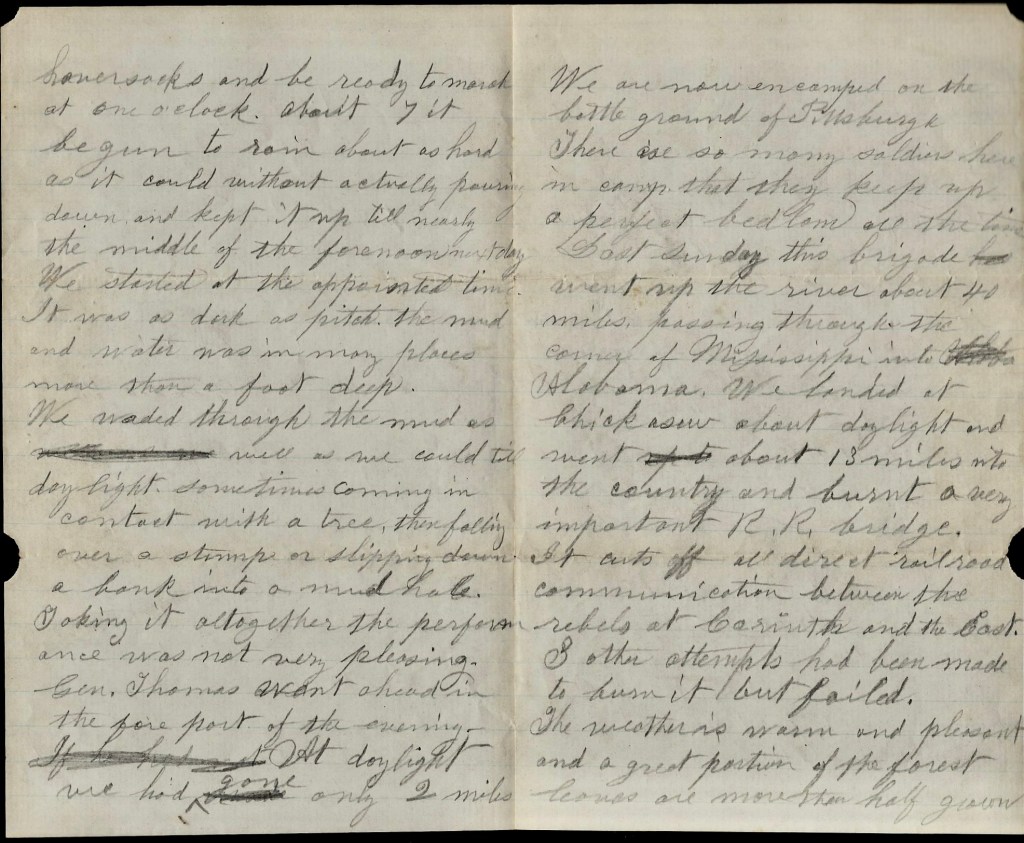 haversacks and be ready to march
at one o'clock. about 7 it
begun to rain about as hard
as it could without actually pouring
down and kept it up till nearly
the middle of the forenoon next day
We started at the appointed time.
It was as dark as pitch. the mud
and water was in many places
more than a foot deep.
We waded through the mud as
well as we could till
daylight. sometimes coming in
contact with a tree, then falling
over a stump or slipping down
a bank into a mud hole.
Taking it altogether the perform
ance was not very pleasing.
Gen. Thomas want ahead in
the fore part of the evening.
At daylight
we had gone only 2 miles
We are now encamped on the
battle ground of Pittsburgh
There are so many soldiers here
in camp that they keep up
a perfect bedlam all the time
Last sunday this brigade
went up the river about 40
miles. passing through the
corner of Mississippi into
Alabama. We landed at
Chickasaw about daylight and
went about 13 miles into
the country and burnt a very
important R.R. bridge.
It cuts off all direct railroad
communication between the
rebels at Corinth and the East.
3 other attempts had been made
to burn it but failed.
The weather is warm and pleasant
and a great portion of the forest
leaves are more than half grown